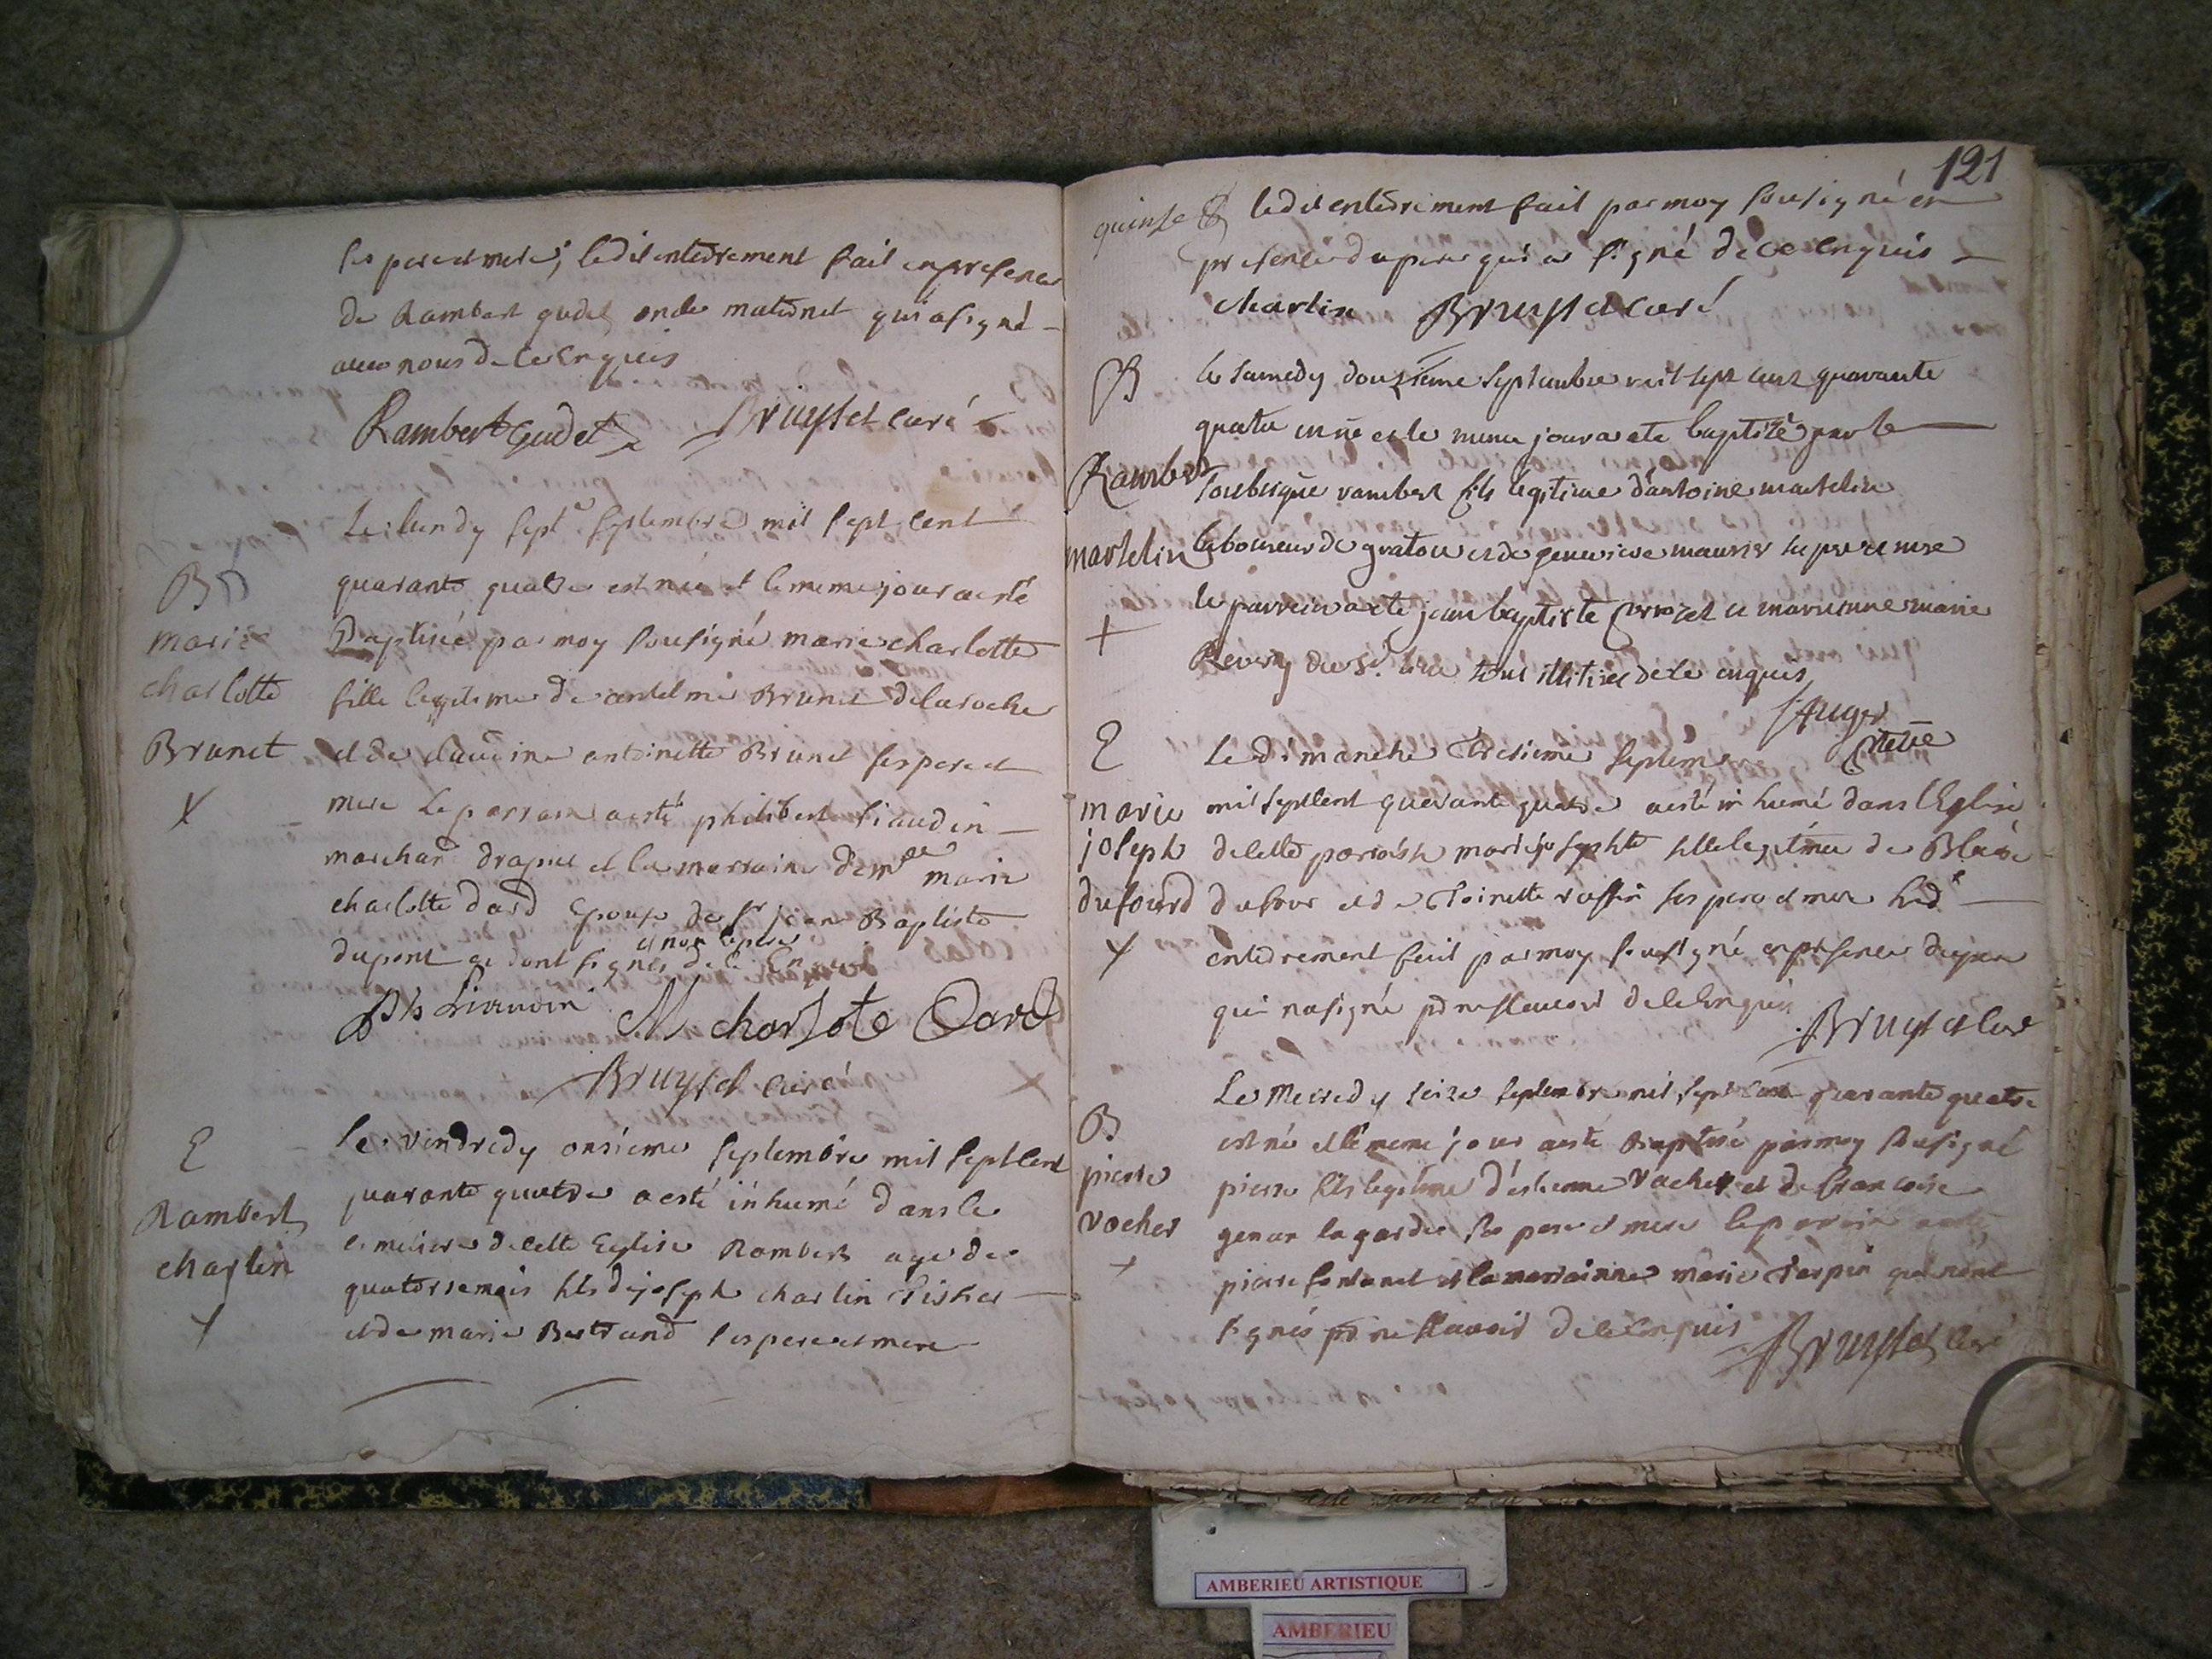 ses pere et mere, ledit enterrement fait en presence
de Rambert gudet oncle maternel qui a signé
avec nous de ce Enquis
Rambert Gudet Bruyset curé
Le lundy sept septembre mil sept cent
B
quarante quatre est née et le meme jour a esté
marie
Baptisée par moy sousigné marie charlotte
charlotte
fille legitime de antelme Brunet delaroche
Brunet
et de claudine antoinette Brunet ses pere et
X
mere Le parrain a esté philibert
marchand drapier et la marraine dem^lle marie
charlotte dard Epouse de s^r jean Baptiste
dupont qui ont signés et non le pere de ce Enquis
M charlote Dard
Bruyset curé
E
Le vendredy onsieme septembre mil sept cent
quarante quatre a esté inhumé dans le
Rambert
cimetiere de cette Eglise Rambert age de
charlin
quatorse mois fils de joseph charlin
X
et de marie Bertrand ses pere et mere
121
quinse ledit enterrement fait par moy sousigné en
presence du pere qui a signé de ce enquis
charlin Bruyset curé
B
le samedy douzieme septembre mil sept cent quarante
quatre est né et le meme jour a ete baptisé par le
Rambert
soubsigné rambert fils legitime d'antoine martelin
martelin
laboureur de gratoux et de genevieve maurier ses pere et mere
+
le parrein a ete jean baptiste et marienne marie
Revery de S^t tous illitires de ce enquis
Auger
E
Le dimanche tresieme septem
marie
mil sept cent quarante quatre a esté inhumé dans l'Eglise
joseph
de cette paroisse marie josephte fille legitime de Blaise
dufourd
dufour et de Toinette ruffin ses pere et mere led^t
X
enterrement fait par moy sousigné en presence du pere
qui n'a signé pr ne scavoir de ce enquis
Bruyset curé
Le Mercredy seize septembre mil sept cent quarante quatre
B
est né et le meme jour a esté Baptisé par moy sousigné
pierre
pierre fils legitime d'estienne Vacher et de francoise
vacher
genar la garde ses pere et mere le parrain a esté
+
pierre fontanet et la marrainne marie tarpin qui n'ont
signés pr ne scavoir de ce enquis Bruyset curé
AMBERIEU ARTISTIQUE
AMBERIEU